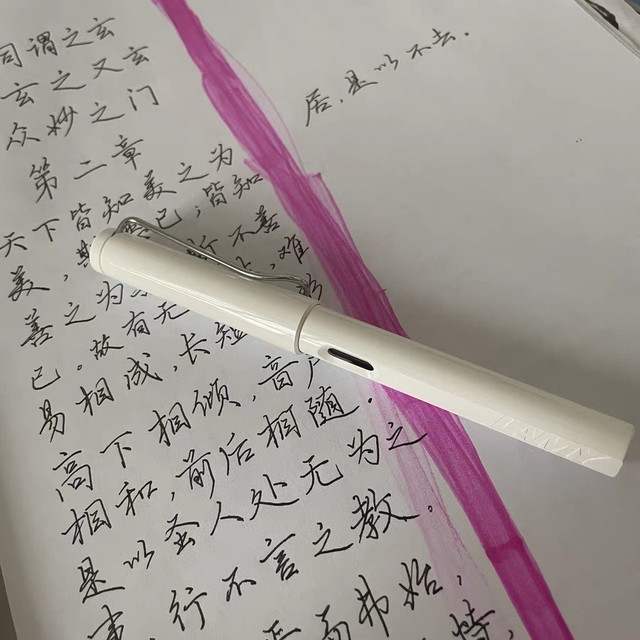 同谓之玄
玄之又玄
众妙之门
第二章
天下皆知美之为
美,斯已,皆知
善之为不善
已。故有无,难
易相成,长短
高下相倾,音声
相和,前后相随。
是以圣人处无为之
事,行不言之教。
而弗始,
恃
居,是以不去。
LAMY